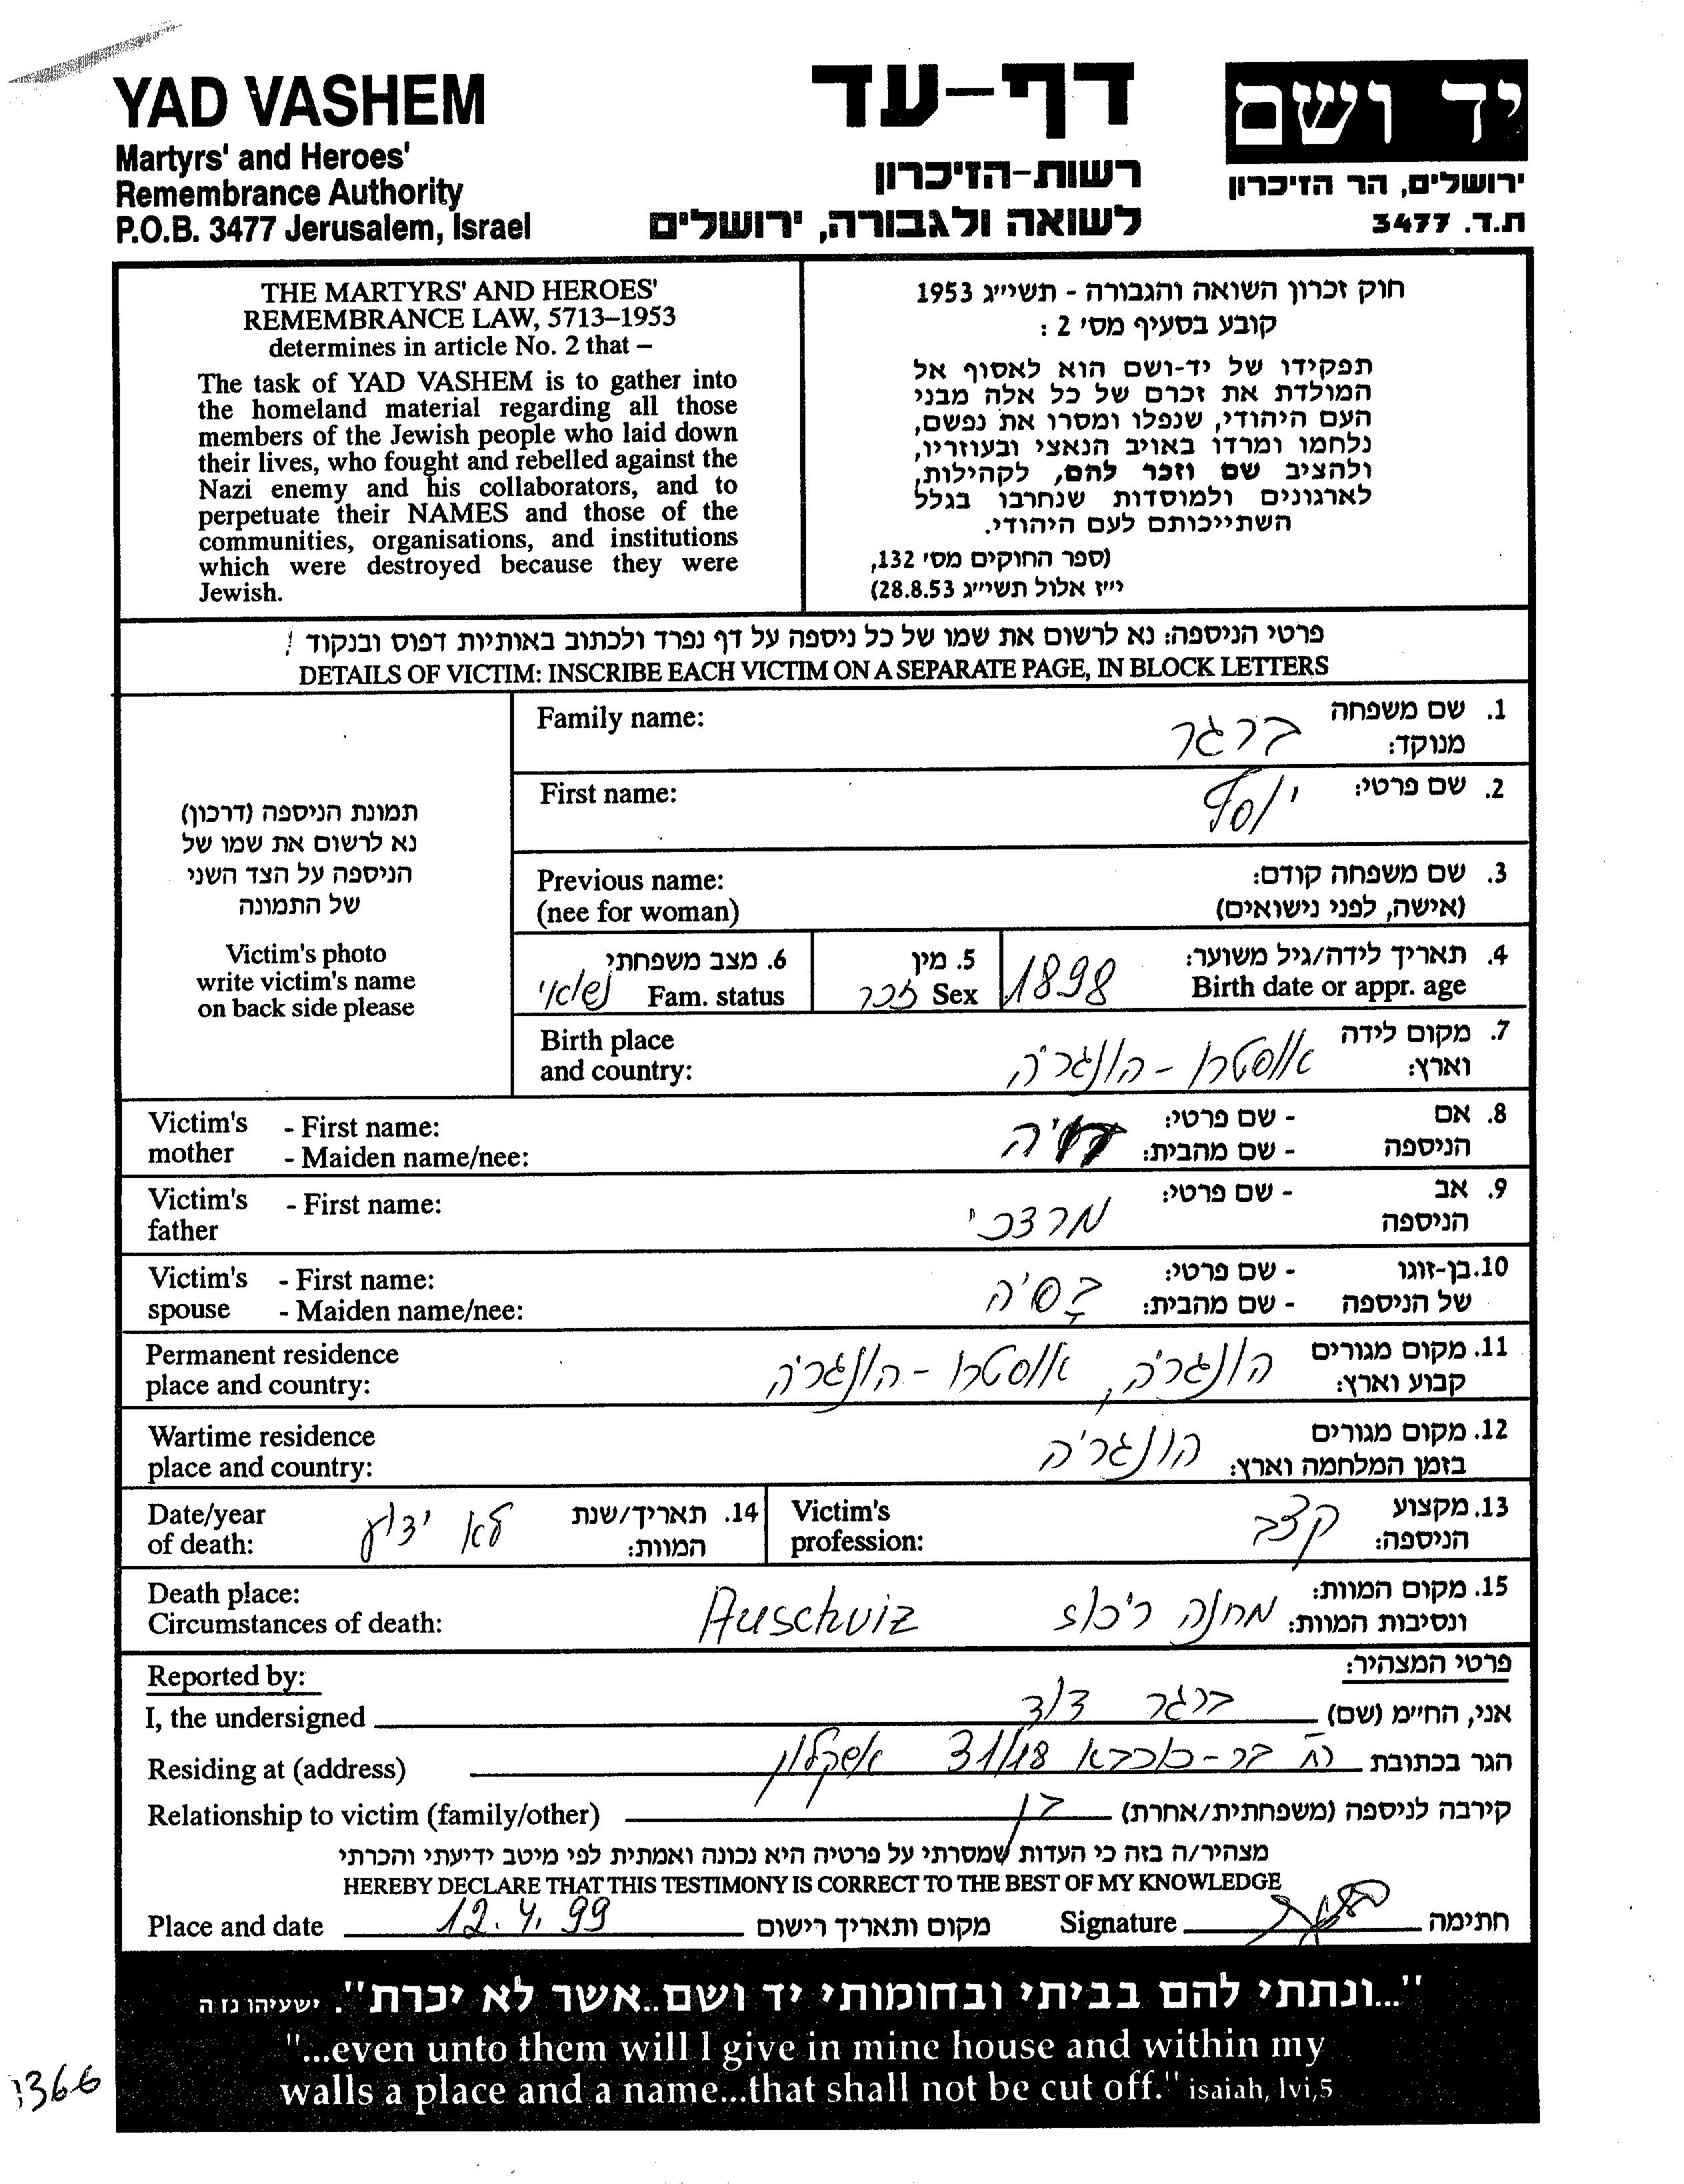 YAD VASHEM
Martyrs' and Heroes'
Remembrance Authority
P.O.B. 3477 Jerusalem, Israel
דף-עד
רשות-הזיכרון
לשואה ולגבורה, ירושלים
יד ושם
ירושלים, הר הזיכרון
ת.ד. 3477
THE MARTYRS' AND HEROES'
REMEMBRANCE LAW, 5713–1953
determines in article No. 2 that –
The task of YAD VASHEM is to gather into
the homeland material regarding all those
members of the Jewish people who laid down
their lives, who fought and rebelled against the
Nazi enemy and his collaborators, and to
perpetuate their NAMES and those of the
communities, organisations, and institutions
which were destroyed because they were
Jewish.
חוק זכרון השואה והגבורה - תשי״ג 1953
קובע בסעיף מס׳ 2 :
תפקידו של יד-ושם הוא לאסוף אל
המולדת את זכרם של כל אלה מבני
העם היהודי, שנפלו ומסרו את נפשם,
נלחמו ומרדו באויב הנאצי ובעוזריו,
ולהציב שם וזכר להם, לקהילות,
לארגונים ולמוסדות שנחרבו בגלל
השתייכותם לעם היהודי.
(ספר החוקים מס׳ 132,
י״ז אלול תשי״ג 28.8.53)
פרטי הניספה: נא לרשום את שמו של כל ניספה על דף נפרד ולכתוב באותיות דפוס ובנקוד !
DETAILS OF VICTIM: INSCRIBE EACH VICTIM ON A SEPARATE PAGE, IN BLOCK LETTERS
תמונת הניספה (דרכון)
נא לרשום את שמו של
הניספה על הצד השני
של התמונה
Victim's photo
write victim's name
on back side please
1. שם משפחה
מנוקד:
ברגר
Family name:
2. שם פרטי:
יוסף
First name:
3. שם משפחה קודם:
(אישה, לפני נישואים)
Previous name:
(nee for woman)
4. תאריך לידה/גיל משוער:
Birth date or appr. age
1898
5. מין
Sex זכר
6. מצב משפחתי
Fam. status נשואי
7. מקום לידה
וארץ:
אוסטרו - הונגריה
Birth place
and country:
8. אם
הניספה
- שם פרטי:
- שם מהבית:
Victim's mother
- First name:
- Maiden name/nee:
9. אב
הניספה
- שם פרטי:
מרדכי
Victim's father
- First name:
10. בן-זוגו
של הניספה
- שם פרטי:
- שם מהבית:
בסיה
Victim's spouse
- First name:
- Maiden name/nee:
11. מקום מגורים
קבוע וארץ:
הונגריה, אוסטרו - הונגריה
Permanent residence
place and country:
12. מקום מגורים
בזמן המלחמה וארץ:
הונגריה
Wartime residence
place and country:
13. מקצוע
הניספה:
קצב
Victim's
profession:
14. תאריך/שנת
המוות:
לא ידוע
Date/year
of death:
15. מקום המוות:
ונסיבות המוות:
מחנה ריכוז Auschviz
Death place:
Circumstances of death:
פרטי המצהיר:
Reported by:
אני, החי״מ (שם) ברגר דוד
I, the undersigned
הגר בכתובת רח בר-כוכבא 31/18 אשקלון
Residing at (address)
קירבה לניספה (משפחתית/אחרת) בן
Relationship to victim (family/other)
מצהיר/ה בזה כי העדות שמסרתי על פרטיה היא נכונה ואמתית לפי מיטב ידיעתי והכרתי
HEREBY DECLARE THAT THIS TESTIMONY IS CORRECT TO THE BEST OF MY KNOWLEDGE
Place and date 12.4.99 מקום ותאריך רישום
Signature חתימה
"...ונתתי להם בביתי ובחומותי יד ושם..אשר לא יכרת". ישעיהו נז ה
"...even unto them will I give in mine house and within my
walls a place and a name...that shall not be cut off." isaiah, lvi,5
1366